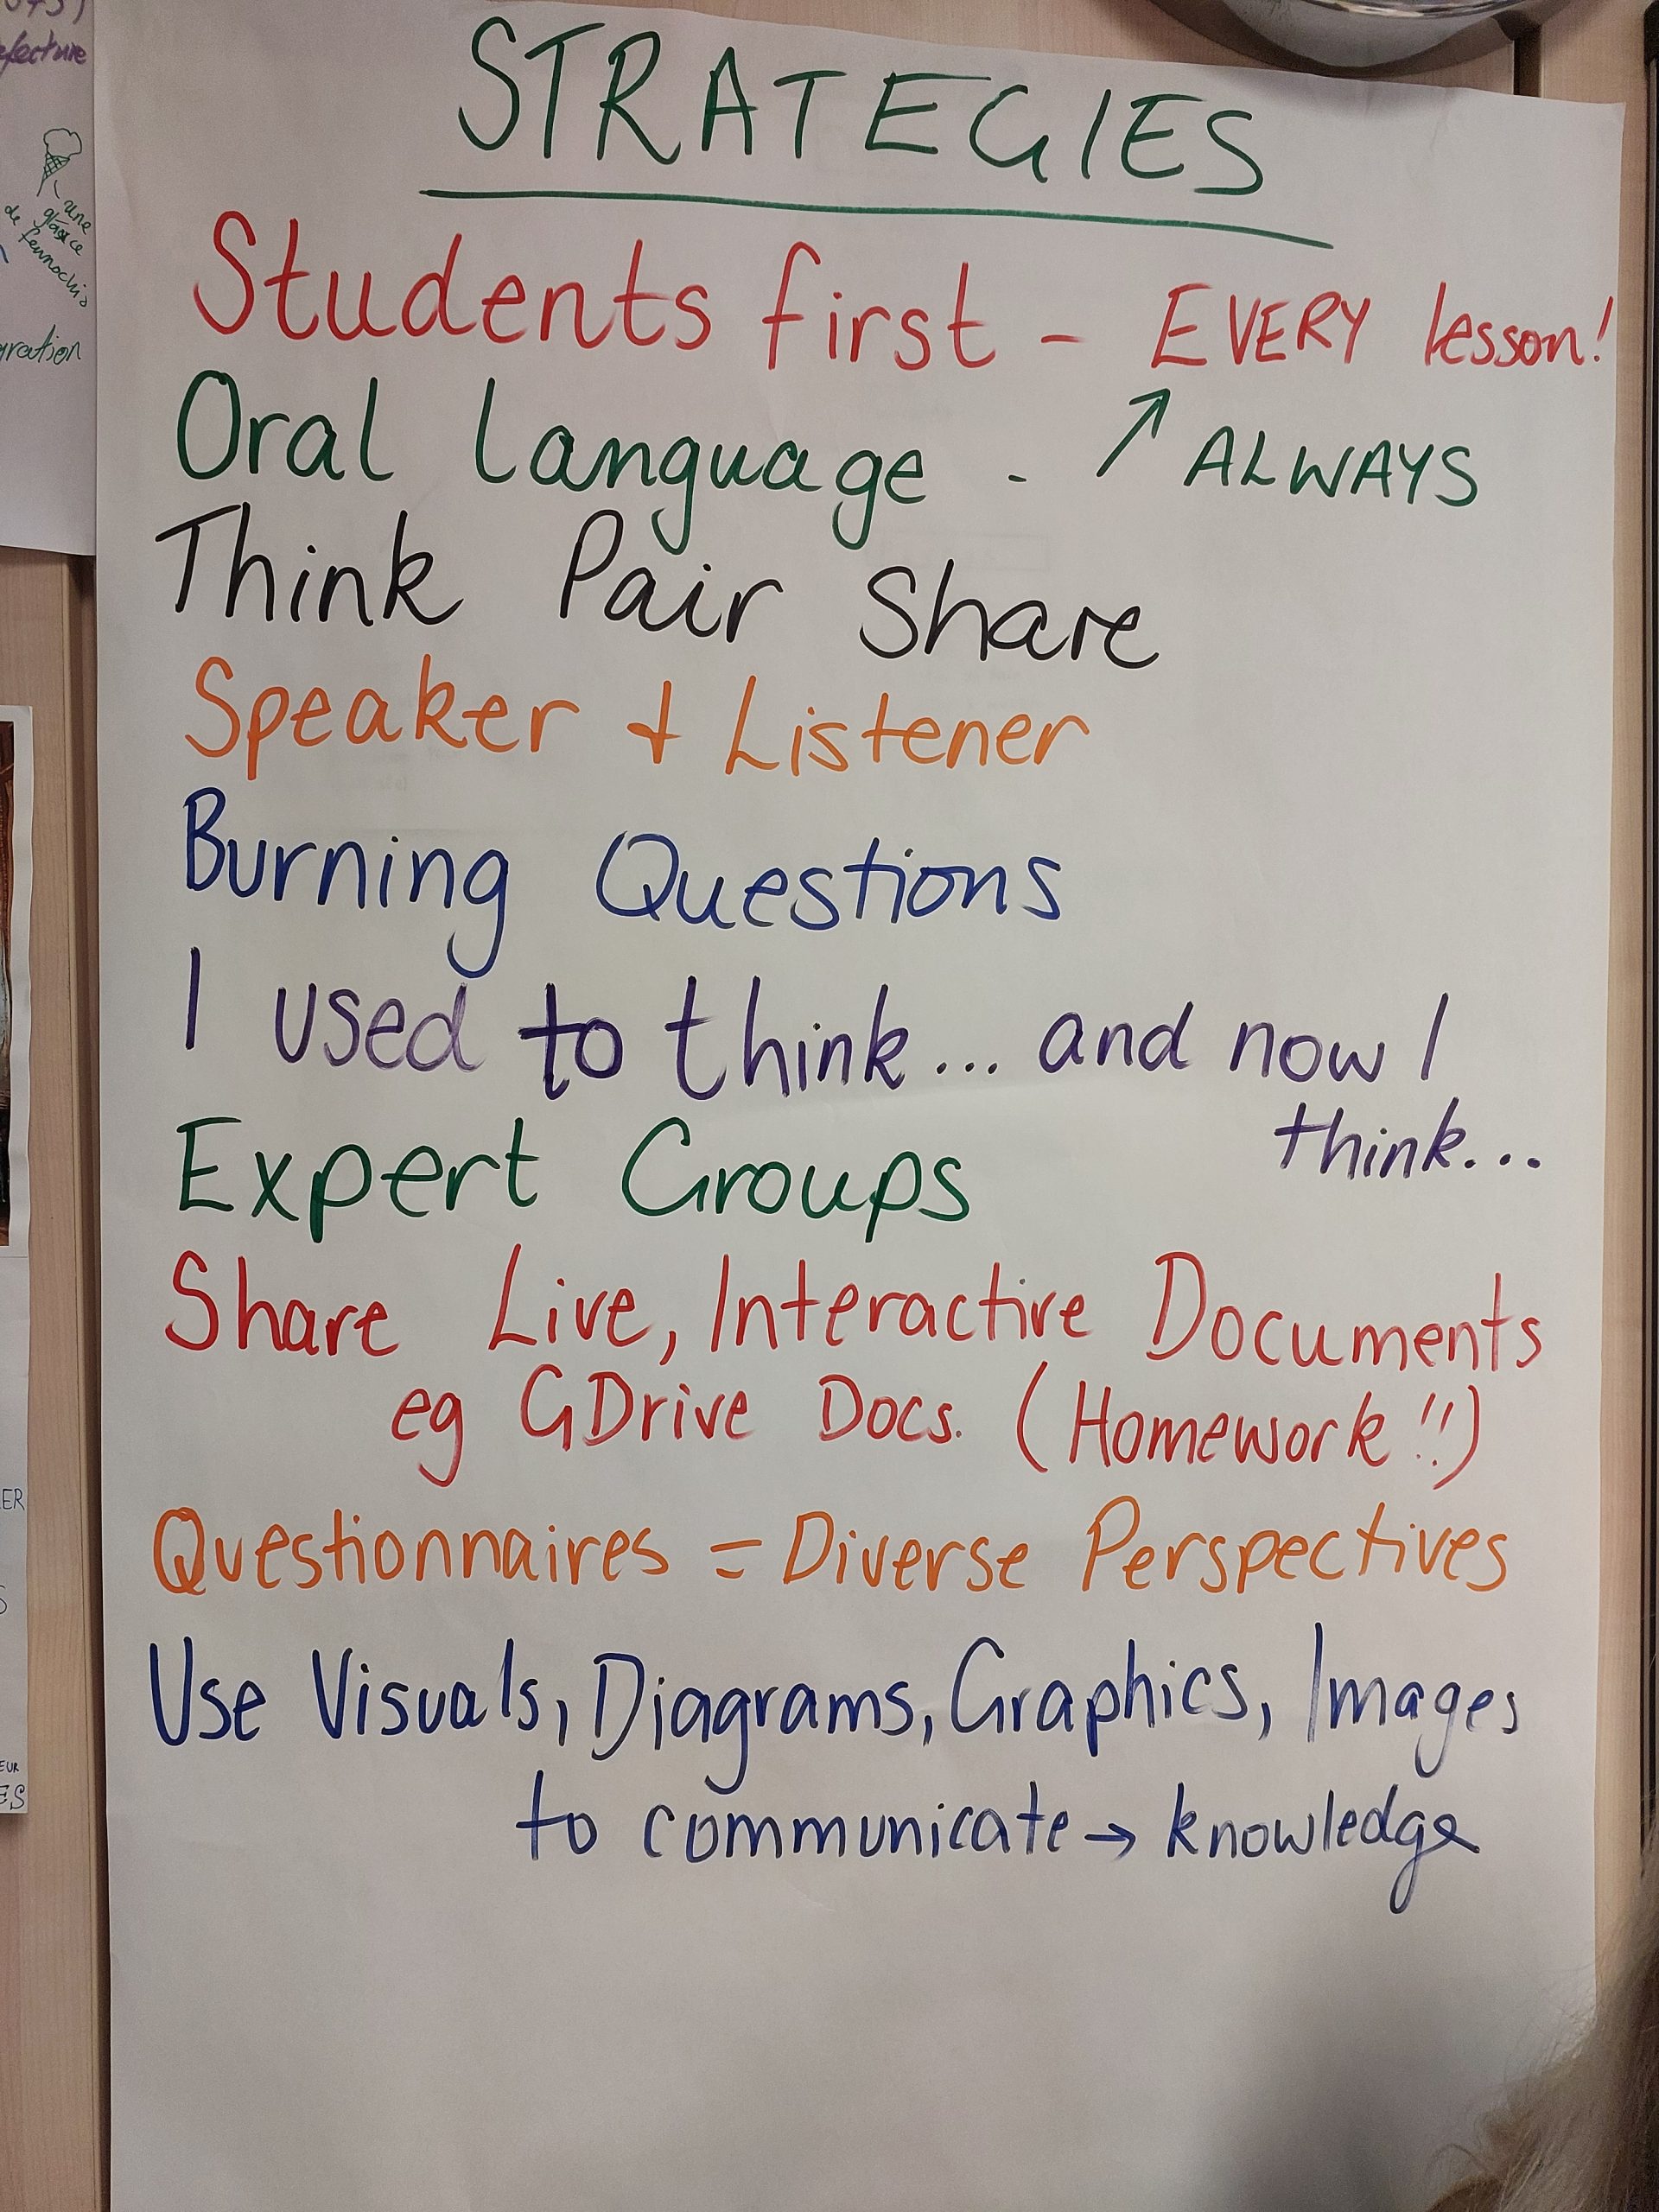 STRATEGIES
Students first - EVERY lesson!
Oral language - ↗ ALWAYS
Think Pair Share
Speaker + Listener
Burning Questions
I used to think... and now I
think...
Expert Groups
Share Live, Interactive Documents
eg GDrive Docs. (Homework!!)
Questionnaires = Diverse Perspectives
Use Visuals, Diagrams, Graphics, Images
to communicate → knowledge
une
de